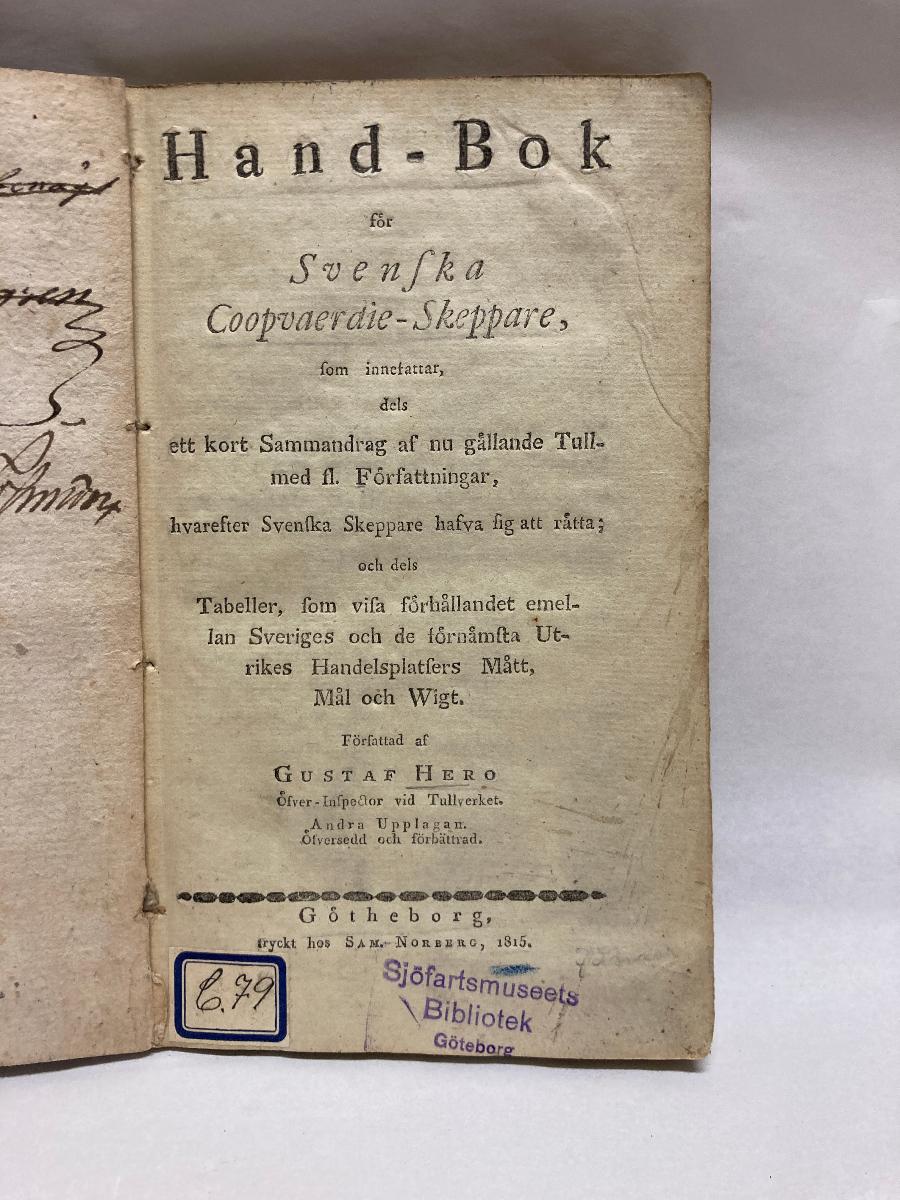 Hand-Bok
fôr
Svenſka
Coopvaerdie-Skeppare,
ſom innefattar,
dels
ett kort Sammandrag af nu gållande Tull-
med fl. Fôrfattningar,
hvarefter Svenſka Skeppare hafva ſig att råtta;
och dels
Tabeller, ſom viſa fôrhållandet emel-
lan Sveriges och de fôrnåmſta Ut-
rikes Handelsplatſers Mått,
Mål och Wigt.
Fôrfattad af
GUSTAF HERO
Ôfver-Inſpector vid Tullverket.
Andra Upplagan.
Ôfversedd och fôrbättrad.
Gôtheborg,
tryckt hos SAM. NORBERG, 1815.
C.79
Sjöfartsmuseets
Bibliotek
Göteborg